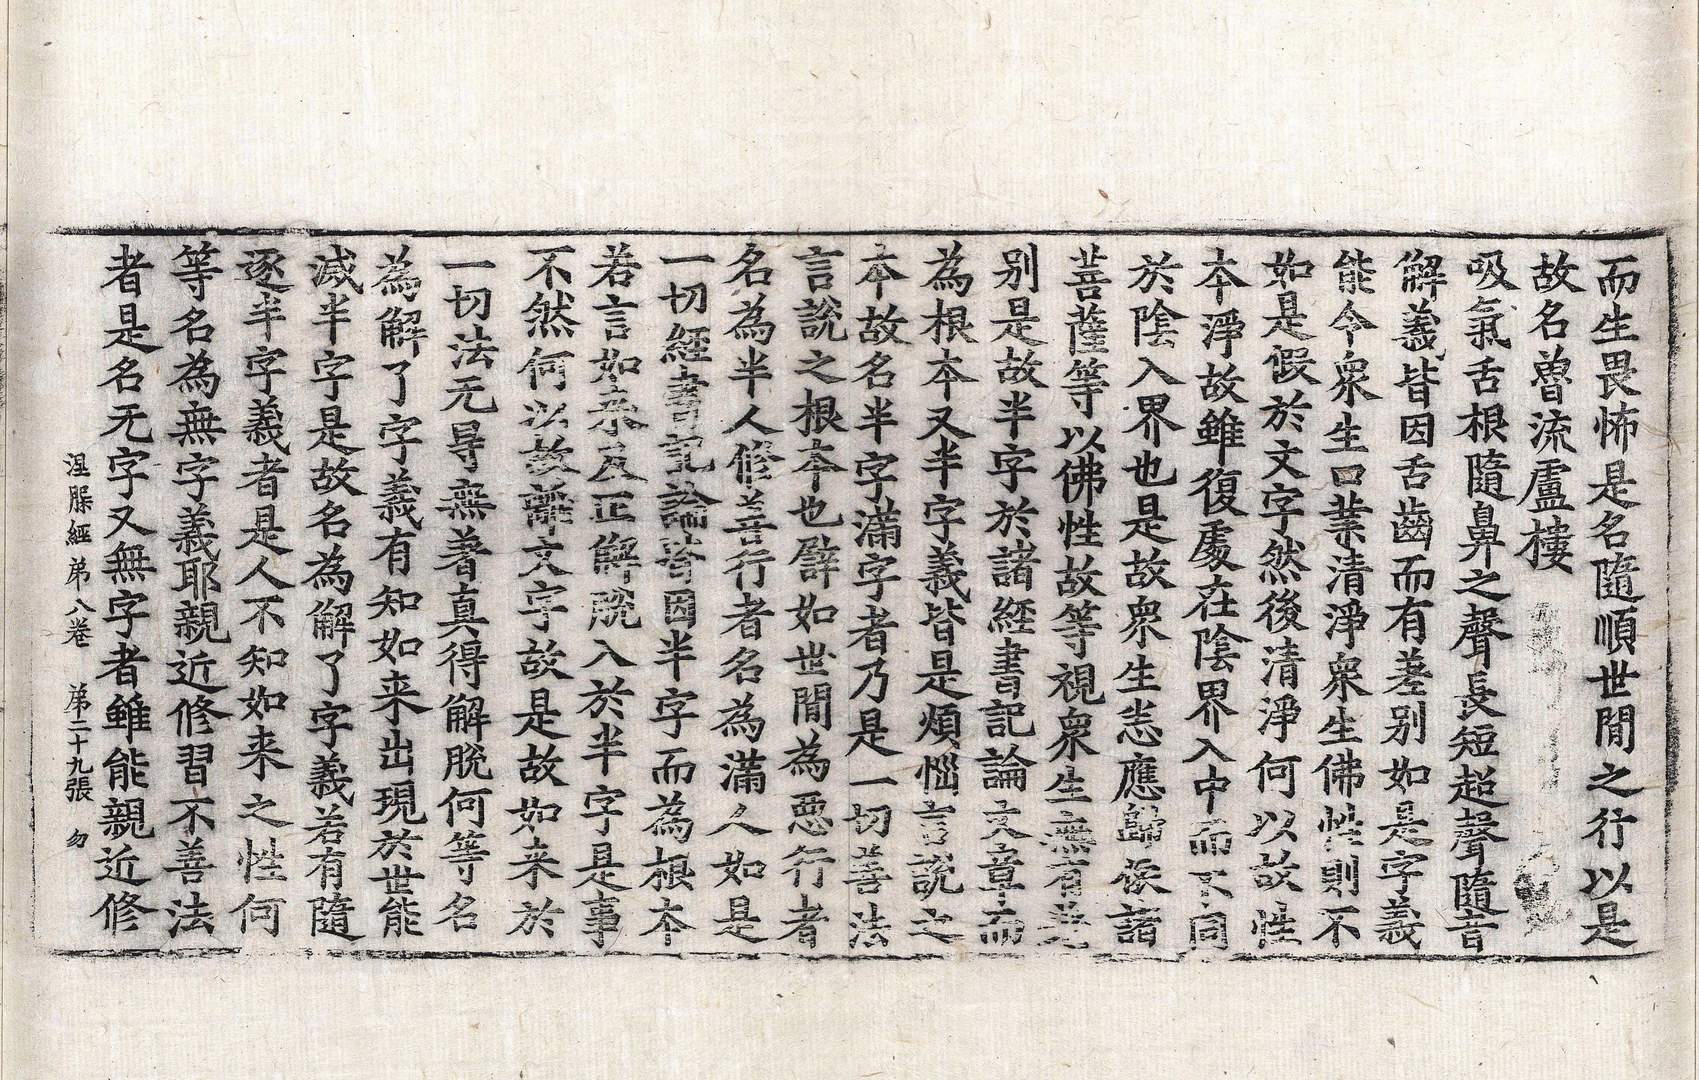 而生畏怖是名隨順世間之行以是
故名魯流盧樓
吸氣舌根隨鼻之聲長短超聲隨音
解義皆因舌齒而有差別如是字義
能令衆生口業清淨衆生佛性則不
如是假於文字然後清淨何以故性
本淨故雖復處在陰界入中而不同
於陰入界也是故衆生悉應歸依諸
菩薩等以佛性故等視衆生無有差
别是故半字於諸經書記論文章而
為根本又半字義皆是煩惱言說之
本故名半字滿字者乃是一切善法
言說之根本也譬如世間為惡行者
名為半人修善行者名為滿人如是
一切經書記論皆因半字而為根本
若言如来及正解脫入於半字是事
不然何以故離文字故是故如来於
一切法无㝵無著真得解脫何等名
為解了字義有知如来出現於世能
滅半字是故名為解了字義若有隨
逐半字義者是人不知如来之性何
等名為無字義耶親近修習不善法
者是名无字又無字者雖能親近修
涅槃經 苐八卷 苐二十九張 勿